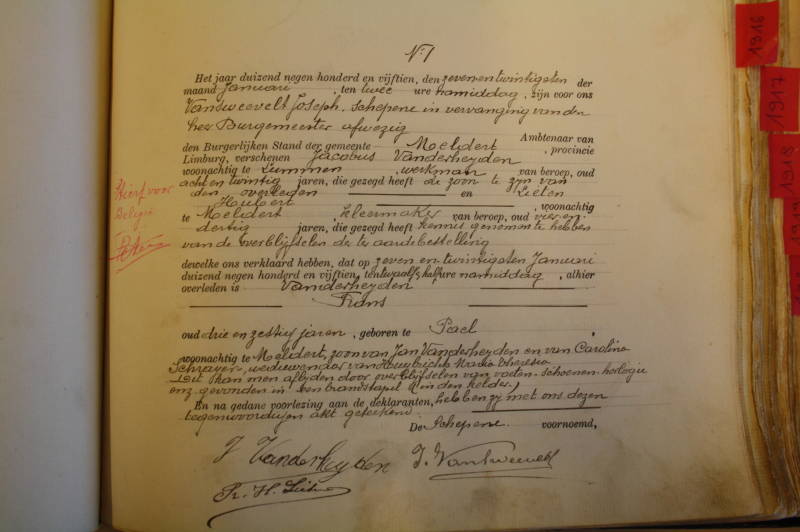 N:1
Het jaar duizend negen honderd en vijftien, den zeven en twintigsten der
maand Januari , ten twee ure namiddag , zijn voor ons
Vansweevelt Joseph. Schepene in vervanging van den
heer Burgemeester afwezig
Ambtenaar van
den Burgerlijken Stand der gemeente Meldert , provincie
Limburg, verschenen Jacobus Vanderheyden
woonachtig te Lummen , werkman van beroep, oud
acht en twintig jaren, die gezegd heeft de zoon te zijn van
den overleden en Lieten
Hubert , woonachtig
te Meldert , kleermaker van beroep, oud vier en
dertig jaren, die gezegd heeft kennis genomen te hebben
van de overblijfselen der te aardebestelling
dewelke ons verklaard hebben, dat op zeven en twintigsten Januari
duizend negen honderd en vijftien, ten twaalf half ure namiddag , alhier
overleden is Vanderheyden
Frans
oud drie en zestig jaren , geboren te Pael ,
woonachtig te Meldert, zoon van Jan Vanderheyden en van Carolina
Schreyer, weduwenaar van Huybrichts Maria Theresia
Dit kan men aflyden door overblijfselen van voeten. schoenen. horlogie
enz gevonden in den brandstapel (in den kelder)
En na gedane voorlezing aan de deklaranten, hebben zij met ons dezen
tegenwoordigen akt geteekend.
De Schepene voornoemd,
J Vanderheyden
J. Vansweevelt
Hierf voor
België
1916
1917
1918
1919